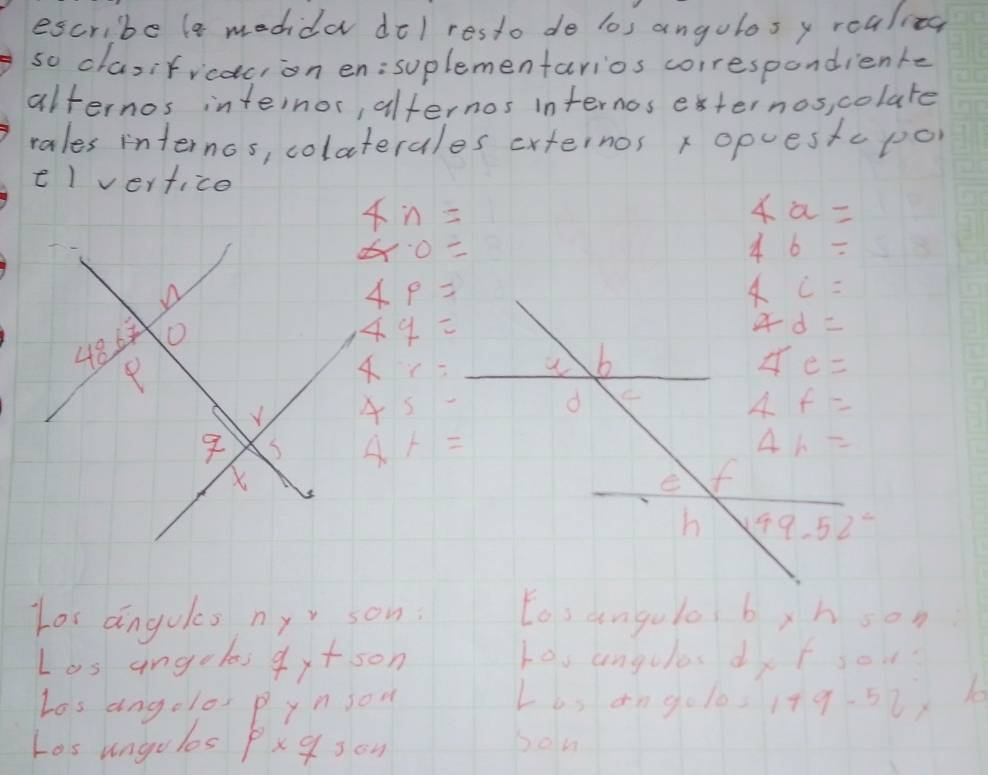 escribe la medida del resto de los angulos y realiza
so clasificacion en: suplementarios correspondiente
alternos internos, alternos internos externos, colate
rales internos, colaterales externos y opuesto por
el vertice
∡ n =
∡ o =
∡ p =
∡ q =
∡ r =
∡ s =
∡ t =
∡ a =
∡ b =
∡ c =
∡ d =
∡ e =
∡ f =
∡ h =
n
48.67
o
p
r
q
s
t
a b
d c
e f
h 149.52°
Los ángulos n y r son:
Los angulos q y t son
Los angulos p y n son
Los angulos p y q son
Los angulos b y h son:
Los angulos d y f son:
Los angulos 149.52 y b
son